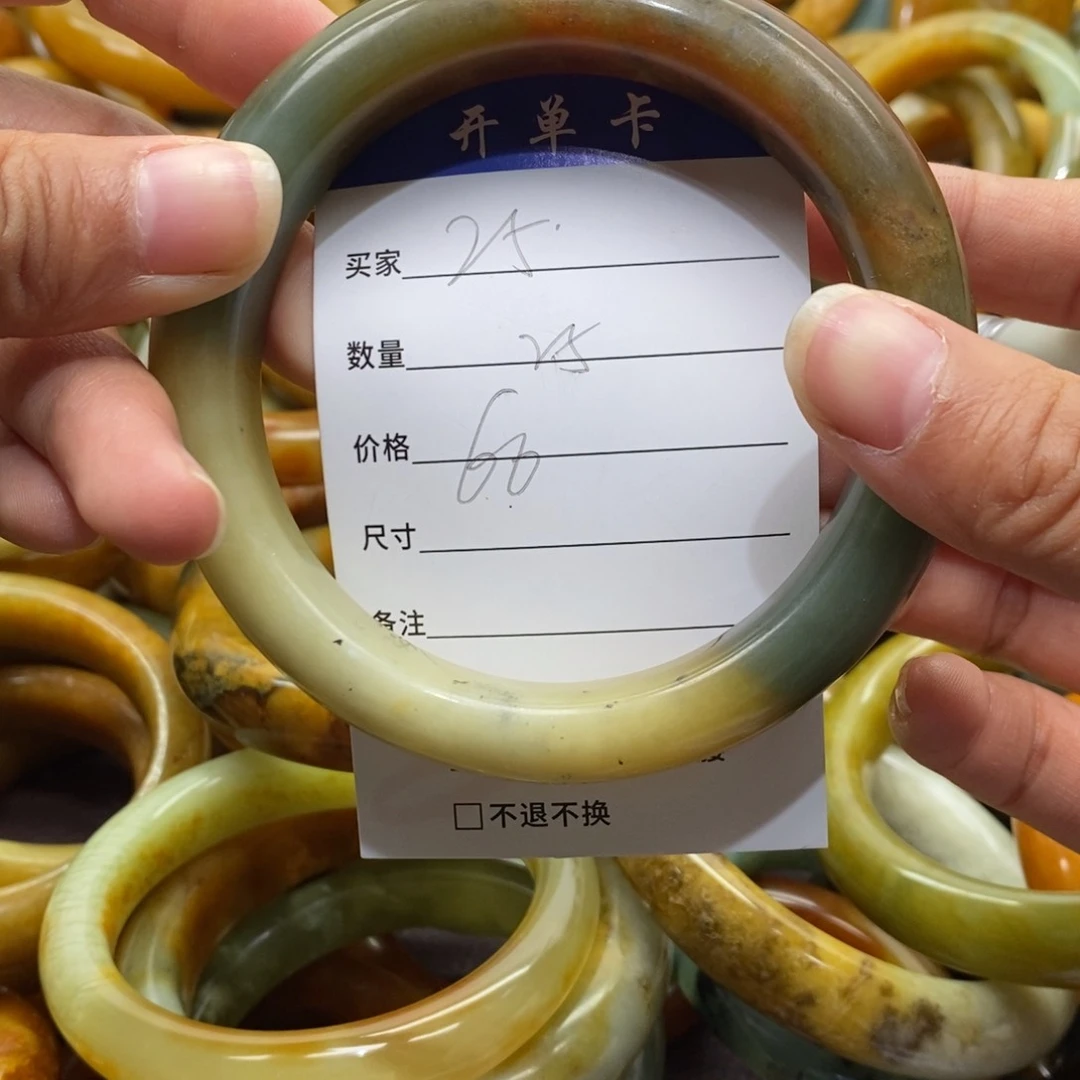 开单卡
买家 25.
数量 25
价格 66
尺寸
备注
不退不换